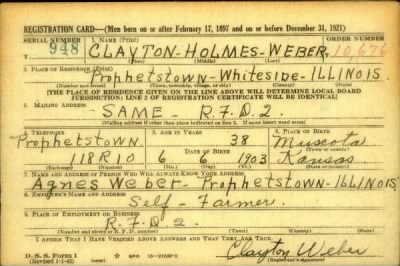 REGISTRATION CARD—(Men born on or after February 17, 1897 and on or before December 31, 1921)
SERIAL NUMBER 1. NAME (Print) ORDER NUMBER
948 CLAYTON-HOLMES-WEBER 10,676
(First) (Middle) (Last)
2. PLACE OF RESIDENCE (Print)
Prophetstown-Whiteside-ILLINOIS
(Number and street) (Town, township, village, or city) (County) (State)
[THE PLACE OF RESIDENCE GIVEN ON THE LINE ABOVE WILL DETERMINE LOCAL BOARD
JURISDICTION; LINE 2 OF REGISTRATION CERTIFICATE WILL BE IDENTICAL]
3. MAILING ADDRESS
SAME - R.F.D.2
[Mailing address if other than place indicated on line 2. If same insert word same]
4. TELEPHONE 5. AGE IN YEARS 6. PLACE OF BIRTH
Prophetstown 38 Muscota
DATE OF BIRTH
118R10 6 6 1903 Kansas
(Exchange) (Number) (Mo.) (Day) (Yr.) (State or country)
7. NAME AND ADDRESS OF PERSON WHO WILL ALWAYS KNOW YOUR ADDRESS
Agnes Weber-Prophetstown-ILLINOIS
8. EMPLOYER'S NAME AND ADDRESS
Self-Farmer.
9. PLACE OF EMPLOYMENT OR BUSINESS
R.F.D 2.
(Number and street or R. F. D. number) (Town) (County) (State)
I AFFIRM THAT I HAVE VERIFIED ABOVE ANSWERS AND THAT THEY ARE TRUE.
D. S. S. Form 1
(Revised 1-1-42) (over)
Clayton Weber
(Registrant's signature)